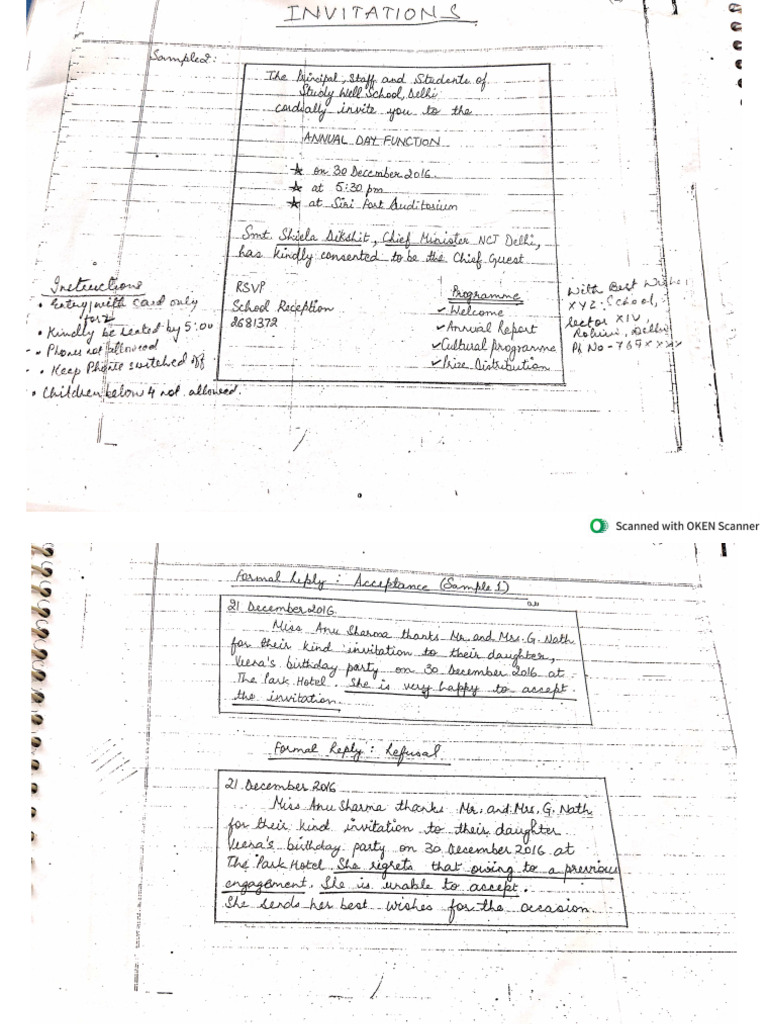 INVITATIONS
Sample 2:
The Principal, Staff and Students of
Study Well School, Delhi
cordially invite you to the
ANNUAL DAY FUNCTION
★ on 30 December 2016.
★ at 5:30 pm
★ at Siri Fort Auditorium
Smt. Shiela Dikshit, Chief Minister NCT Delhi,
has kindly consented to be the Chief Guest
RSVP
School Reception
2681372
Programme
✓ Welcome
✓ Annual Report
✓ Cultural programme
✓ Prize Distribution
Instructions
• Entry with card only
for 2
• Kindly be seated by 5:00
• Phones not allowed
• Keep Phone switched off
• Children below 4 not allowed.
With Best Wishes
XYZ School,
Sector XIV,
Rohini, Delhi
Ph No - 769xxxx
Scanned with OKEN Scanner
Formal Reply : Acceptance (Sample 1)
21 December 2016
Miss Anu Sharma thanks Mr. and Mrs. G. Nath
for their kind invitation to their daughter,
Veena's birthday party on 30 December 2016 at
The Park Hotel. She is very happy to accept
the invitation.
Formal Reply : Refusal
21 December 2016
Miss Anu Sharma thanks Mr. and Mrs. G. Nath
for their kind invitation to their daughter
Veena's birthday party on 30 December 2016 at
The Park Hotel She regrets that owing to a previous
engagement. She is unable to accept.
She sends her best wishes for the occasion.